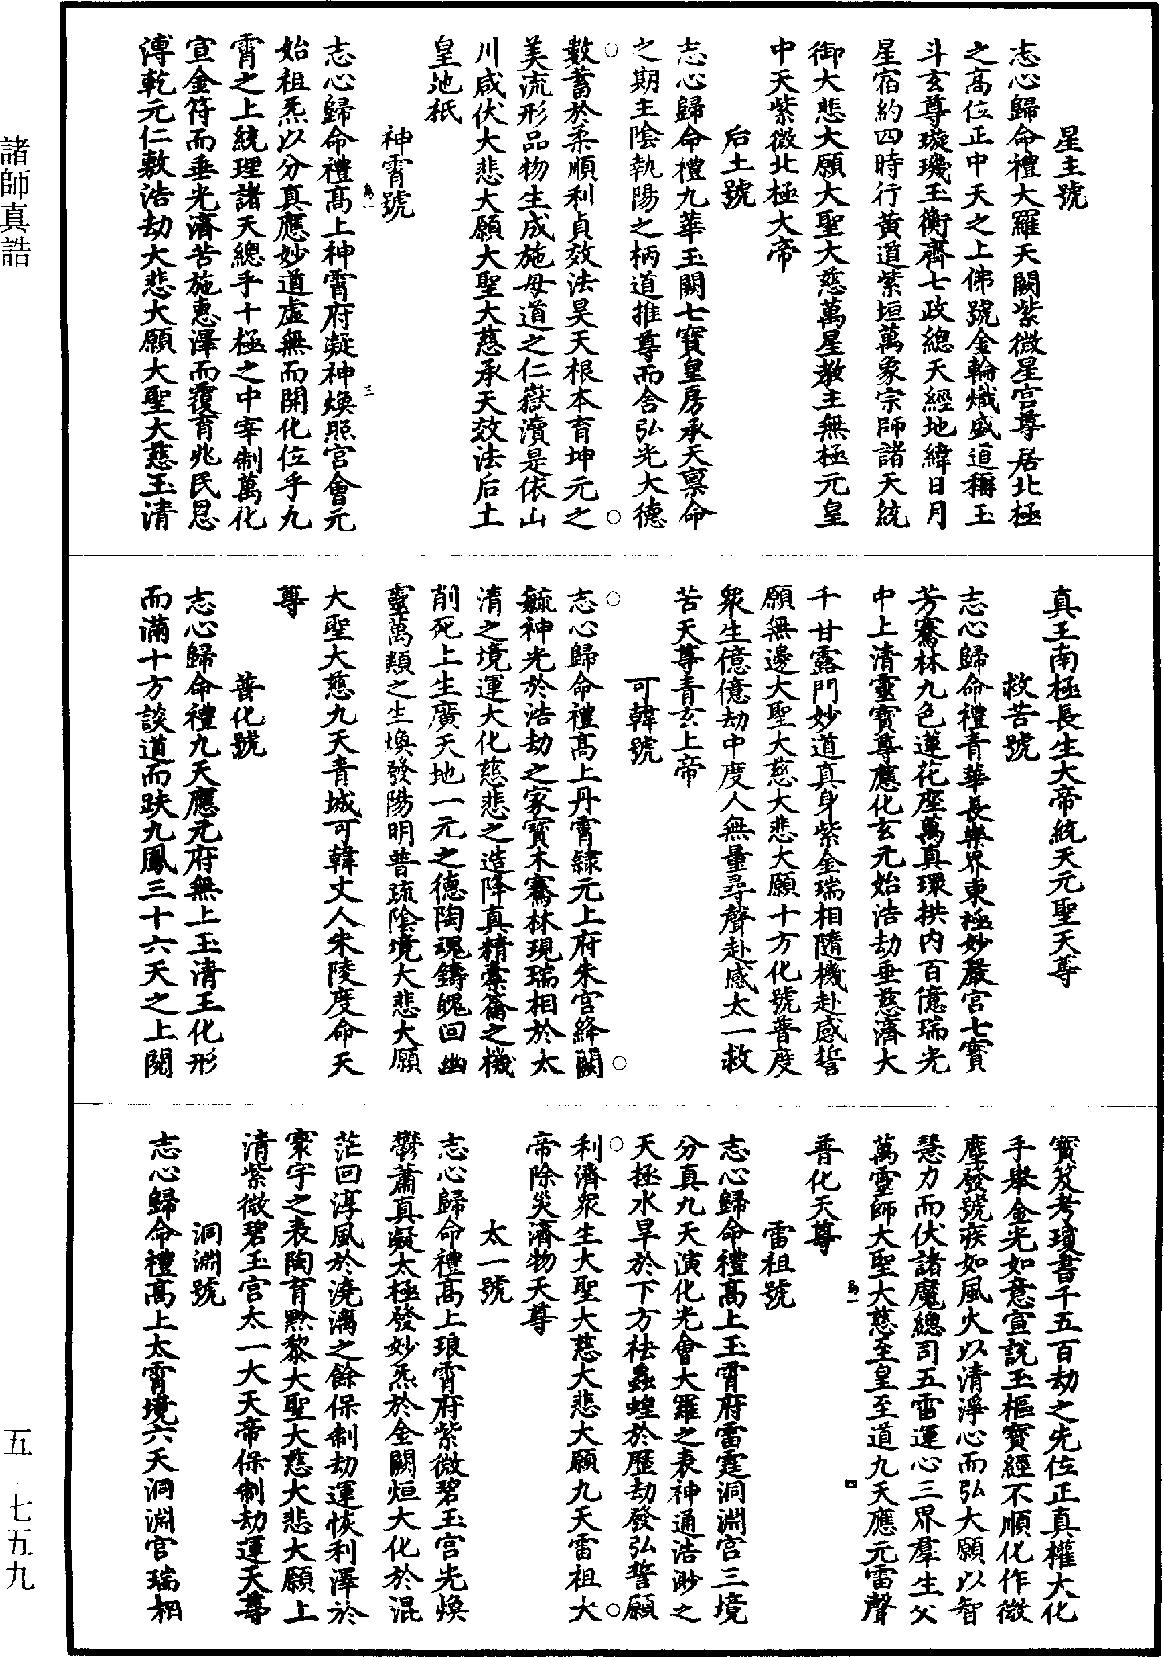 星主號
志心歸命禮大羅天闕紫微星宮尊居北極
之高位正中天之上佛號金輪熾盛道稱玉
斗玄尊璇璣玉衡齊七政總天經地緯日月
星宿約四時行黃道紫垣萬象宗師諸天統
御大悲大願大聖大慈萬星教主無極元皇
中天紫微北極大帝
后土號
志心歸命禮九華玉闕七寶皇房承天禀命
之期主陰執陽之柄道推尊而含弘光大德
數蓄於柔順利貞效法昊天根本育坤元之
美流形品物生成施母道之仁嶽瀆是依山
川咸伏大悲大願大聖大慈承天效法后土
皇地祇
神霄號
志心歸命禮高上神霄府凝神煥照宮會元
始祖炁以分真應妙道虛無而開化位乎九
霄之上統理諸天總乎十極之中宰制萬化
宣金符而垂光濟苦施惠澤而覆育兆民恩
溥乾元仁敷浩劫大悲大願大聖大慈玉清
真王南極長生大帝統天元聖天尊
救苦號
志心歸命禮青華長樂界東極妙嚴宮七寶
芳騫林九色蓮花座萬真環拱內百億瑞光
中上清靈寶尊應化玄元始浩劫垂慈濟大
千甘露門妙道真身紫金瑞相隨機赴感誓
願無邊大聖大慈大悲大願十方化號普度
眾生億億劫中度人無量尋聲赴感太一救
苦天尊青玄上帝
可韓號
志心歸命禮高上丹霄隸元上府朱宮絳闕
毓神光於浩劫之家寶木騫林現瑞相於太
清之境運大化慈悲之造降真精橐籥之機
削死上生廣天地一元之德陶魂鑄魄回幽
靈萬類之生煥發陽明普疏陰境大悲大願
大聖大慈九天青城可韓丈人朱陵度命天
尊
普化號
志心歸命禮九天應元府無上玉清王化形
而滿十方談道而趺九鳳三十六天之上閱
寶笈考瓊書千五百劫之先位正真權大化
手舉金光如意宣說玉樞寶經不順化作微
塵發號疾如風火以清淨心而弘大願以智
慧力而伏諸魔總司五雷運心三界羣生父
萬靈師大聖大慈至皇至道九天應元雷聲
普化天尊
雷祖號
志心歸命禮高上玉霄府雷霆洞淵宮三境
分真九天演化光會大羅之表神通浩渺之
天拯水旱於下方祛蟲蝗於歷劫發弘誓願
利濟眾生大聖大慈大悲大願九天雷祖大
帝除災濟物天尊
太一號
志心歸命禮高上琅霄府紫微碧玉宮光煥
鬱蕭真凝太極發妙炁於金闕烜大化於混
茫回淳風於澆漓之餘保制劫運恢利澤於
寰宇之表陶育黔黎大聖大慈大悲大願上
清紫微碧玉宮太一大天帝保制劫運天尊
洞淵號
志心歸命禮高上太霄境六天洞淵宮瑞相
諸師真誥
五 七五九